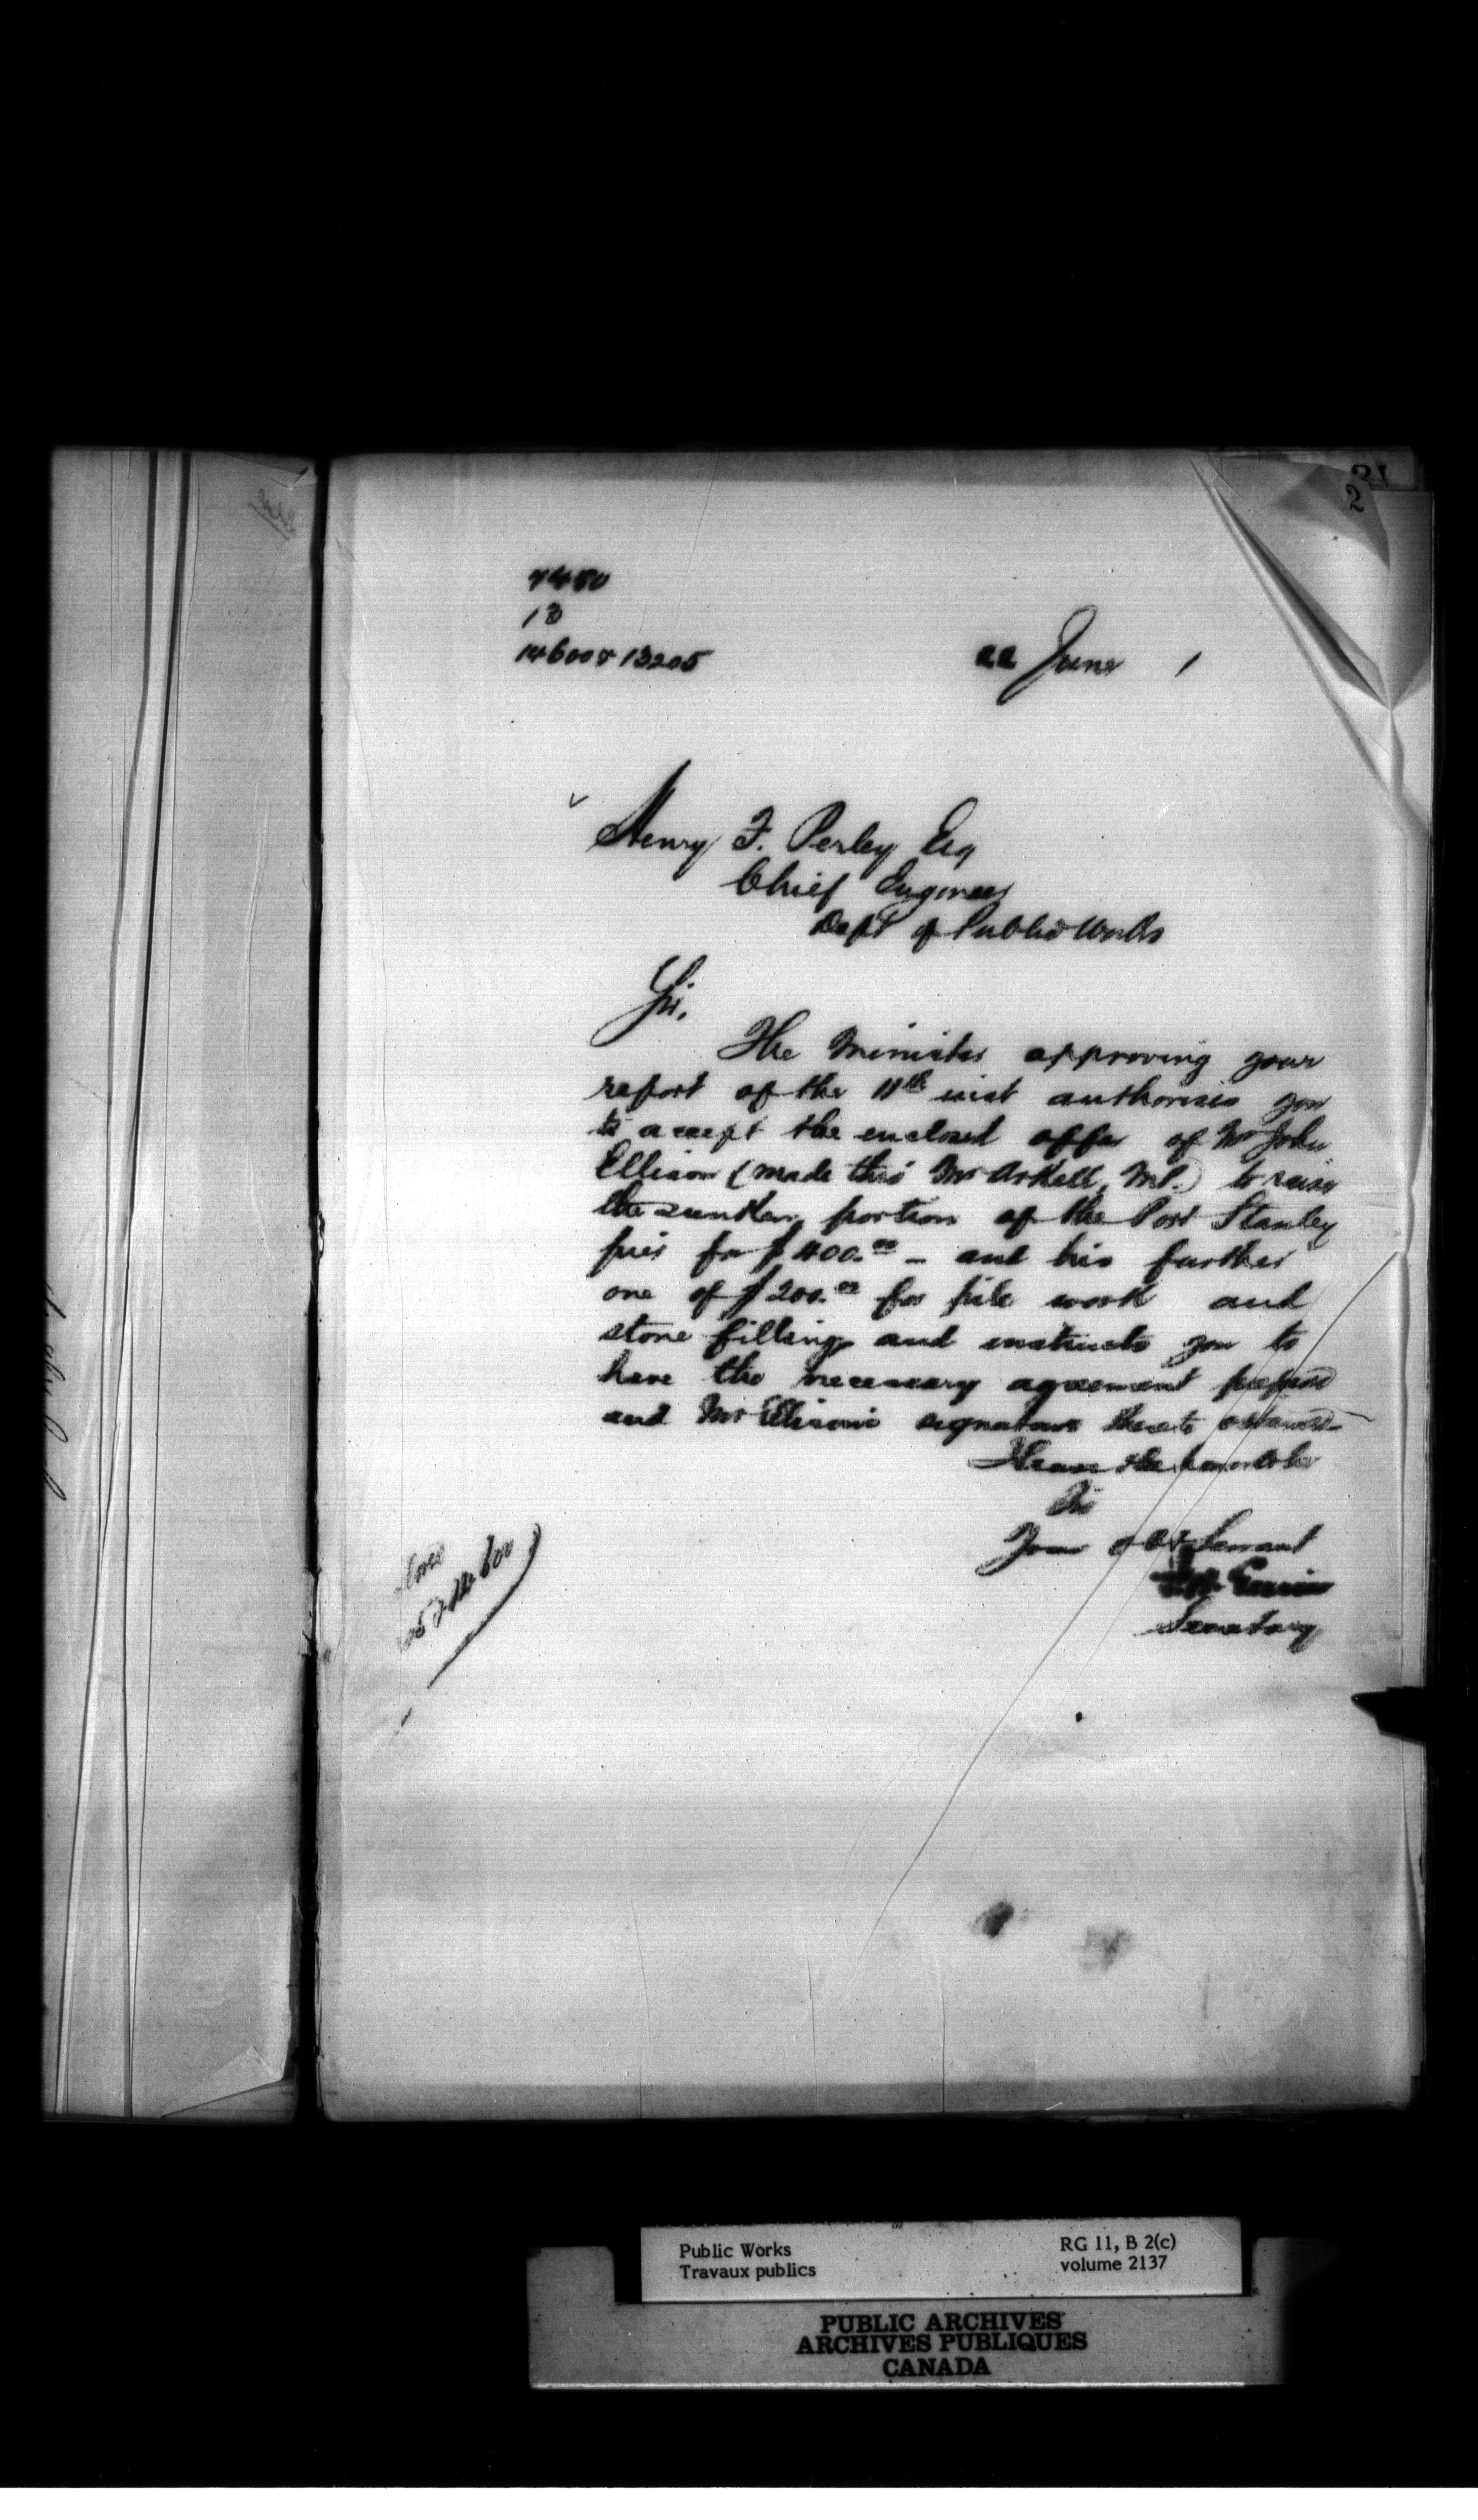 21
2
7480
13
14600 & 13205
22 June 1
Henry F. Perley Esq
Chief Engineer
Dept of Public Works
Sir,
The Minister approving your
report of the 11th inst authorises you
to accept the enclosed offer of Mr John
Ellison (made thro' Mr Arkell, M.P.) to raise
the sunken portion of the Port Stanley
pier for $400.00 - and his further
one of $200.00 for pile work and
stone filling and instructs you to
have the necessary agreement prepared
and Mr Ellison's signature thereto obtained-
I have the honor to be
Sir
Your obt Servant
Secretary
Public Works
Travaux publics
RG 11, B 2(c)
volume 2137
PUBLIC ARCHIVES
ARCHIVES PUBLIQUES
CANADA